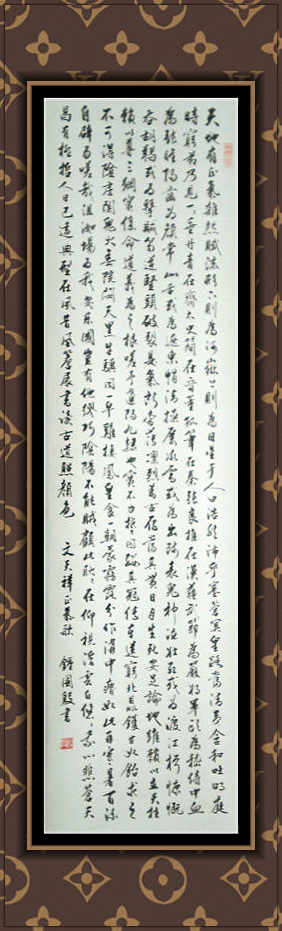 天地有正氣雜然賦流形下則為河嶽上則為日星于人曰浩然沛乎塞蒼冥皇路當清夷含和吐明庭
時窮節乃見一一垂丹青在齊太史簡在晉董狐筆在秦張良椎在漢蘇武節為嚴將軍頭為嵇侍中血
為張睢陽齒為顏常山舌或為遼東帽清操厲冰雪或為出師表鬼神泣壯烈或為渡江楫慷慨
吞胡羯或為擊賊笏逆豎頭破裂是氣所磅礴凜烈萬古存當其貫日月生死安足論地維賴以立天柱
賴以尊三綱實係命道義為之根嗟予遘陽九隸也實不力楚囚纓其冠傳車送窮北鼎鑊甘如飴求之
不可得陰房闃鬼火春院閟天黑牛驥同一皁雞棲鳳凰食一朝蒙霧露分作溝中瘠如此再寒暑百沴
自辟易嗟哉沮洳場為我安樂國豈有他繆巧陰陽不能賊顧此耿耿在仰視浮雲白悠悠我心悲蒼天
曷有極哲人日已遠典型在夙昔風簷展書讀古道照顏色 文天祥正氣歌 國毅書